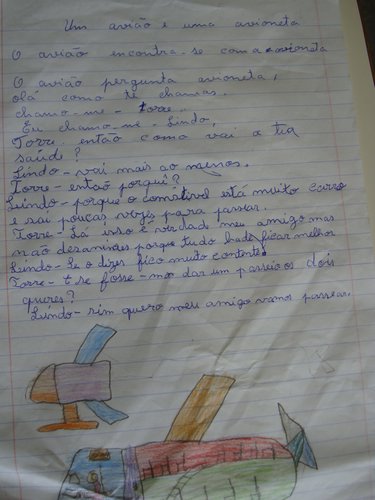 Um avião e uma avioneta
O avião encontra-se com a avioneta
O avião pergunta avioneta,
olá como te chamas.
chamo-me-torre..
Eu chamo-me-Lindo,
Torre então como vai a tua
saúde?
Lindo-vai mais ao menos.
Torre-então porquê?
Luindo-porque o está muito carro
e sai poucas vezes para passear.
Torre-Lá isso é verdade meu amigo mas
não desanimes porque tudo háde ficar melhor
Lindo-Se o dizes fico muito contente!
Torre-t se fosse-mos dar um passeio os dois
queres?
Lundo-sim quero meu amigo vamos passear.